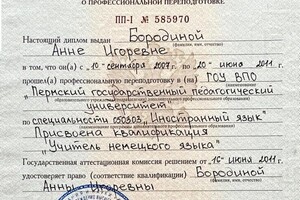 О ПРОФЕССИОНАЛЬНОЙ ПЕРЕПОДГОТОВКЕ
ПП-I № 585970
Настоящий диплом выдан Бородиной
(фамилия, имя, отчество)
Анне Игоревне
в том, что он(а) с „10" сентября 2009 г. по „20" июня 2011 г.
прошел(а) профессиональную переподготовку в (на) ГОУ ВПО
„Пермский государственный педагогический
университет"
по специальности 050303 „Иностранный язык"
Присвоена квалификация
"Учитель немецкого языка"
Государственная аттестационная комиссия решением от „16" июня 2011 г.
удостоверяет право (соответствие квалификации) Бородиной
(фамилия, имя, отчество)
Анны Игоревны